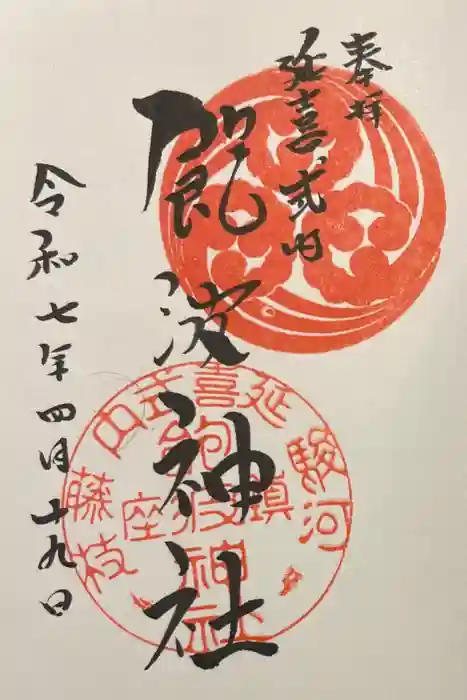 奉拝
延喜式内
飽波神社
令和七年四月十九日
延喜式内
駿河
藤枝
鎮座
飽波神社